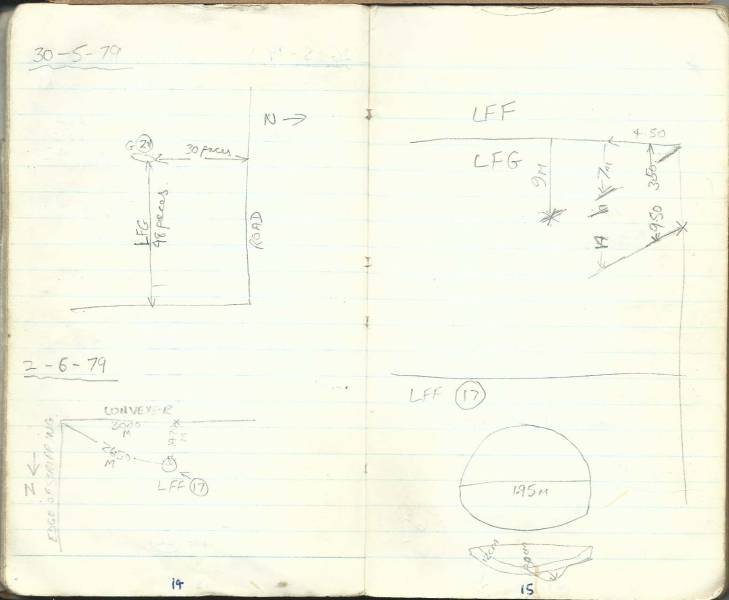 30-5-79
N →
G 21
30 paces
LFG
48 paces
ROAD
2-6-79
CONVEYER
M
M
N
EDGE OF STRIPPING
LFF 17
14
LFF
4.50
LFG
9M
7M
350
950
LFF 17
195M
15